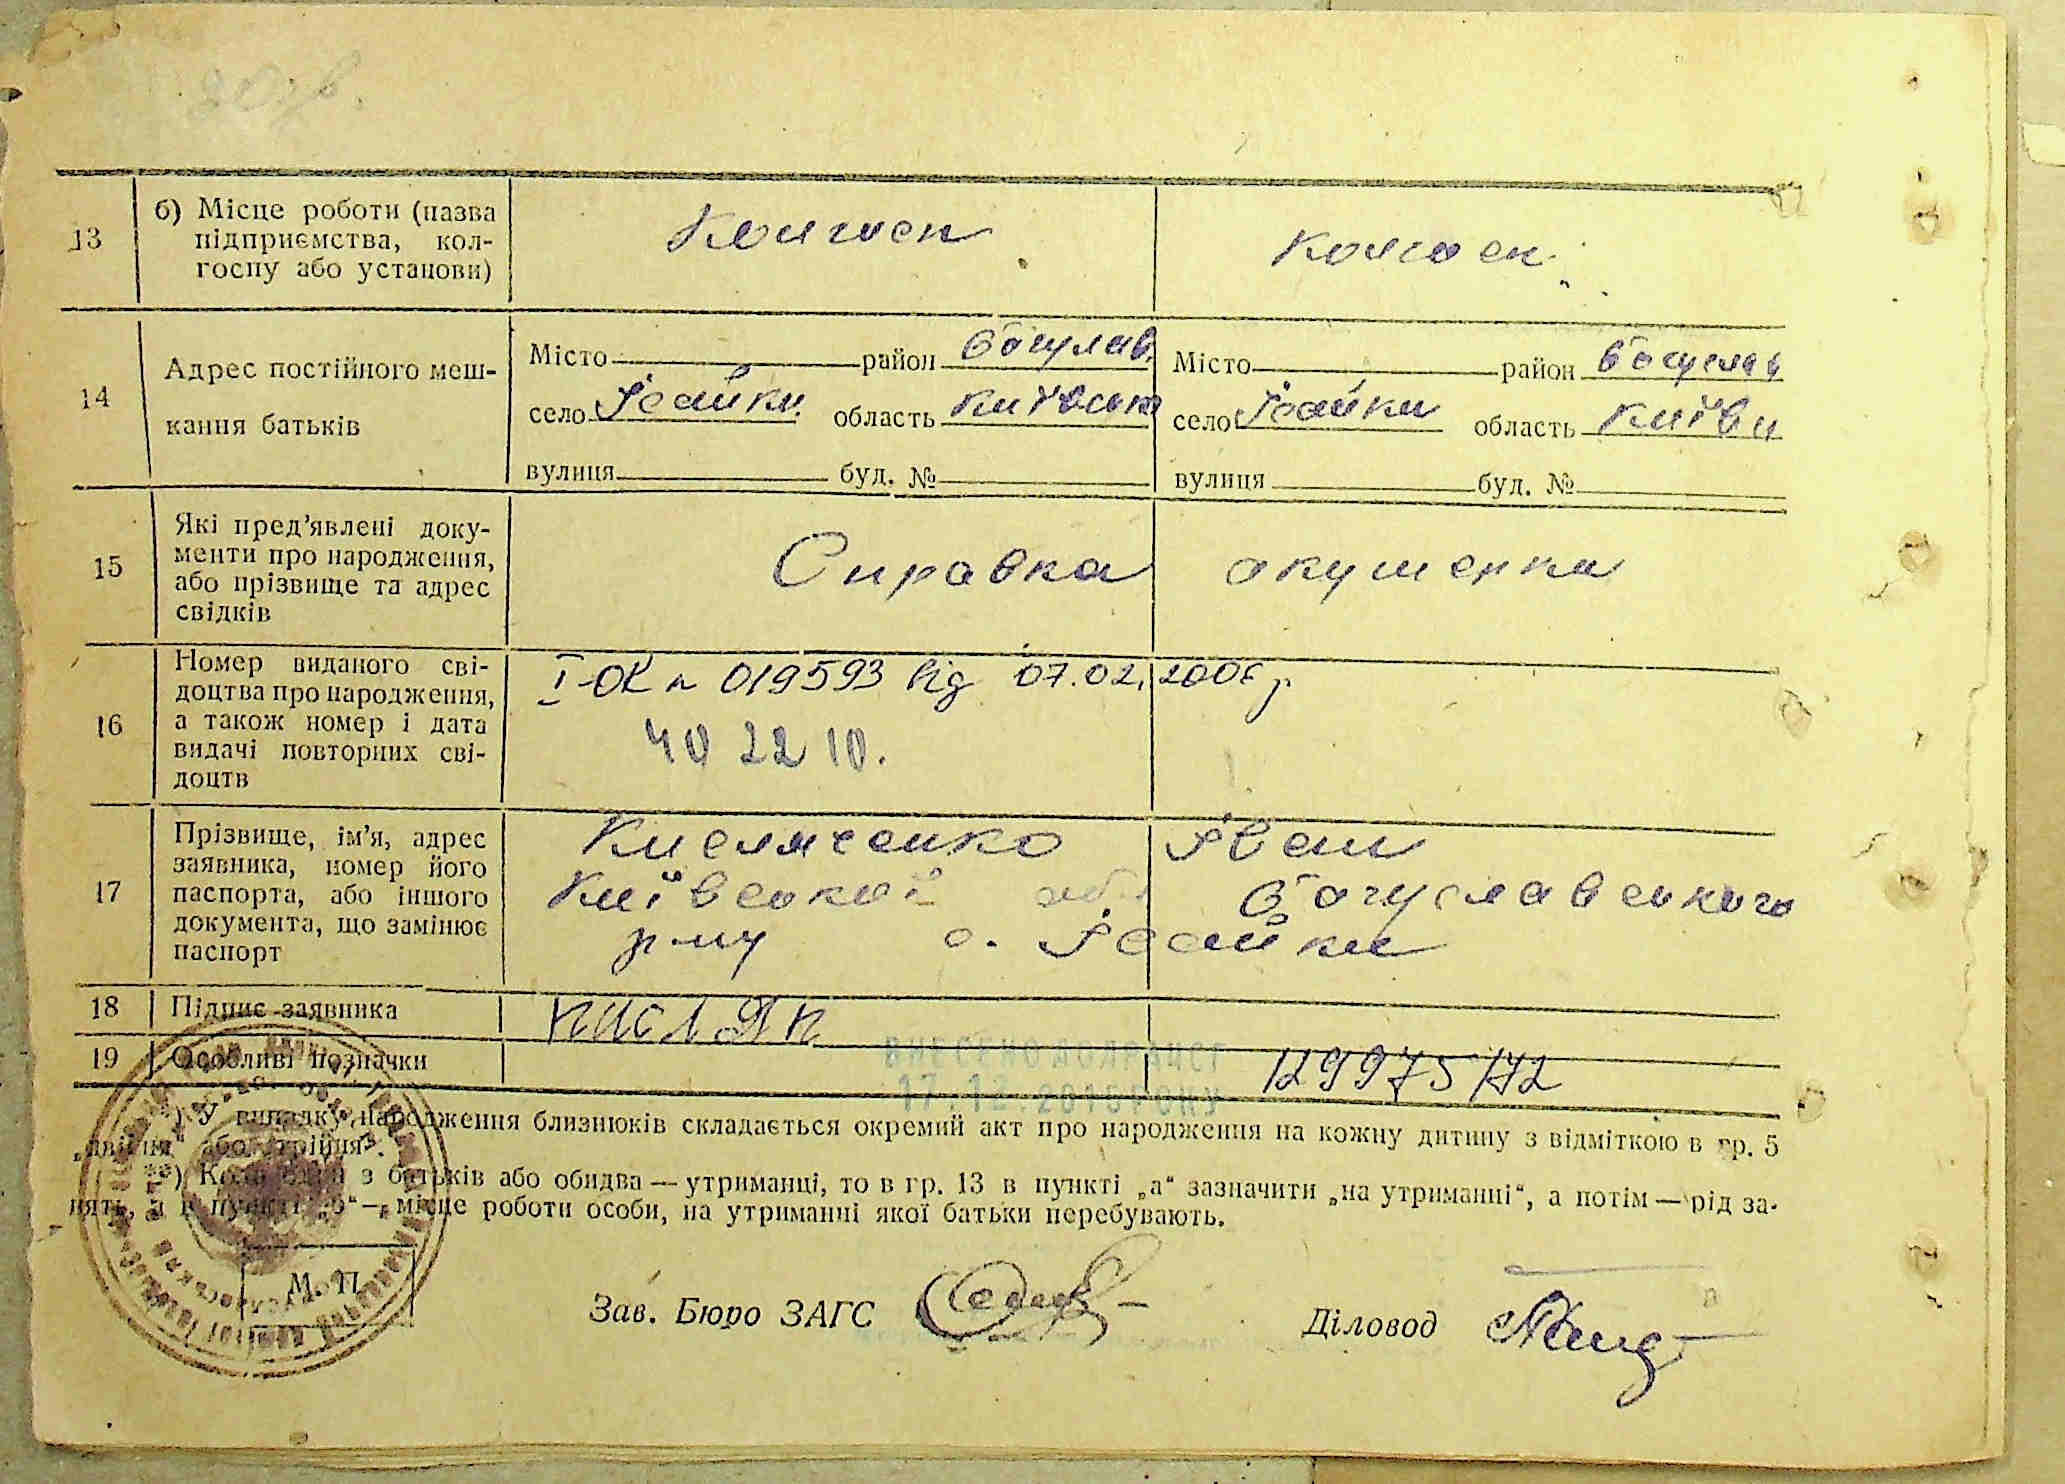 13
б) Місце роботи (назва
підприємства, кол-
госпу або установи)
Колгосп
колгосп
14
Адрес постійного меш-
кання батьків
Місто район Богуслав.
село Ісайки область Київська
вулиця буд. №
Місто район Богуслав
село Ісайки область Київськ
вулиця буд. №
15
Які пред’явлені доку-
менти про народження,
або прізвище та адрес
свідків
Справка акушерки
16
Номер виданого сві-
доцтва про народження,
а також номер і дата
видачі повторних сві-
доцтв
І-ОК № 019593 від 07.02.2006 р.
40 22 10.
17
Прізвище, ім’я, адрес
заявника, номер його
паспорта, або іншого
документа, що замінює
паспорт
Кисляченко Іван
Київської обл Богуславського
р-ну с. Ісайки
18
Підпис заявника
кисляк
19
Особливі позначки
ВНЕСЕНО ДО ДРАЦСГ
17.12.2015 РОКУ
129975/72
*) У випадку народження близнюків складається окремий акт про народження на кожну дитину з відміткою в гр. 5
„двійня“ або „трійня“.
**) Коли один з батьків або обидва — утриманці, то в гр. 13 в пункті „а“ зазначити „на утриманні“, а потім — рід за-
нять, а в пункті „б“ — місце роботи особи, на утриманні якої батьки перебувають.
М. П.
Зав. Бюро ЗАГС
Діловод